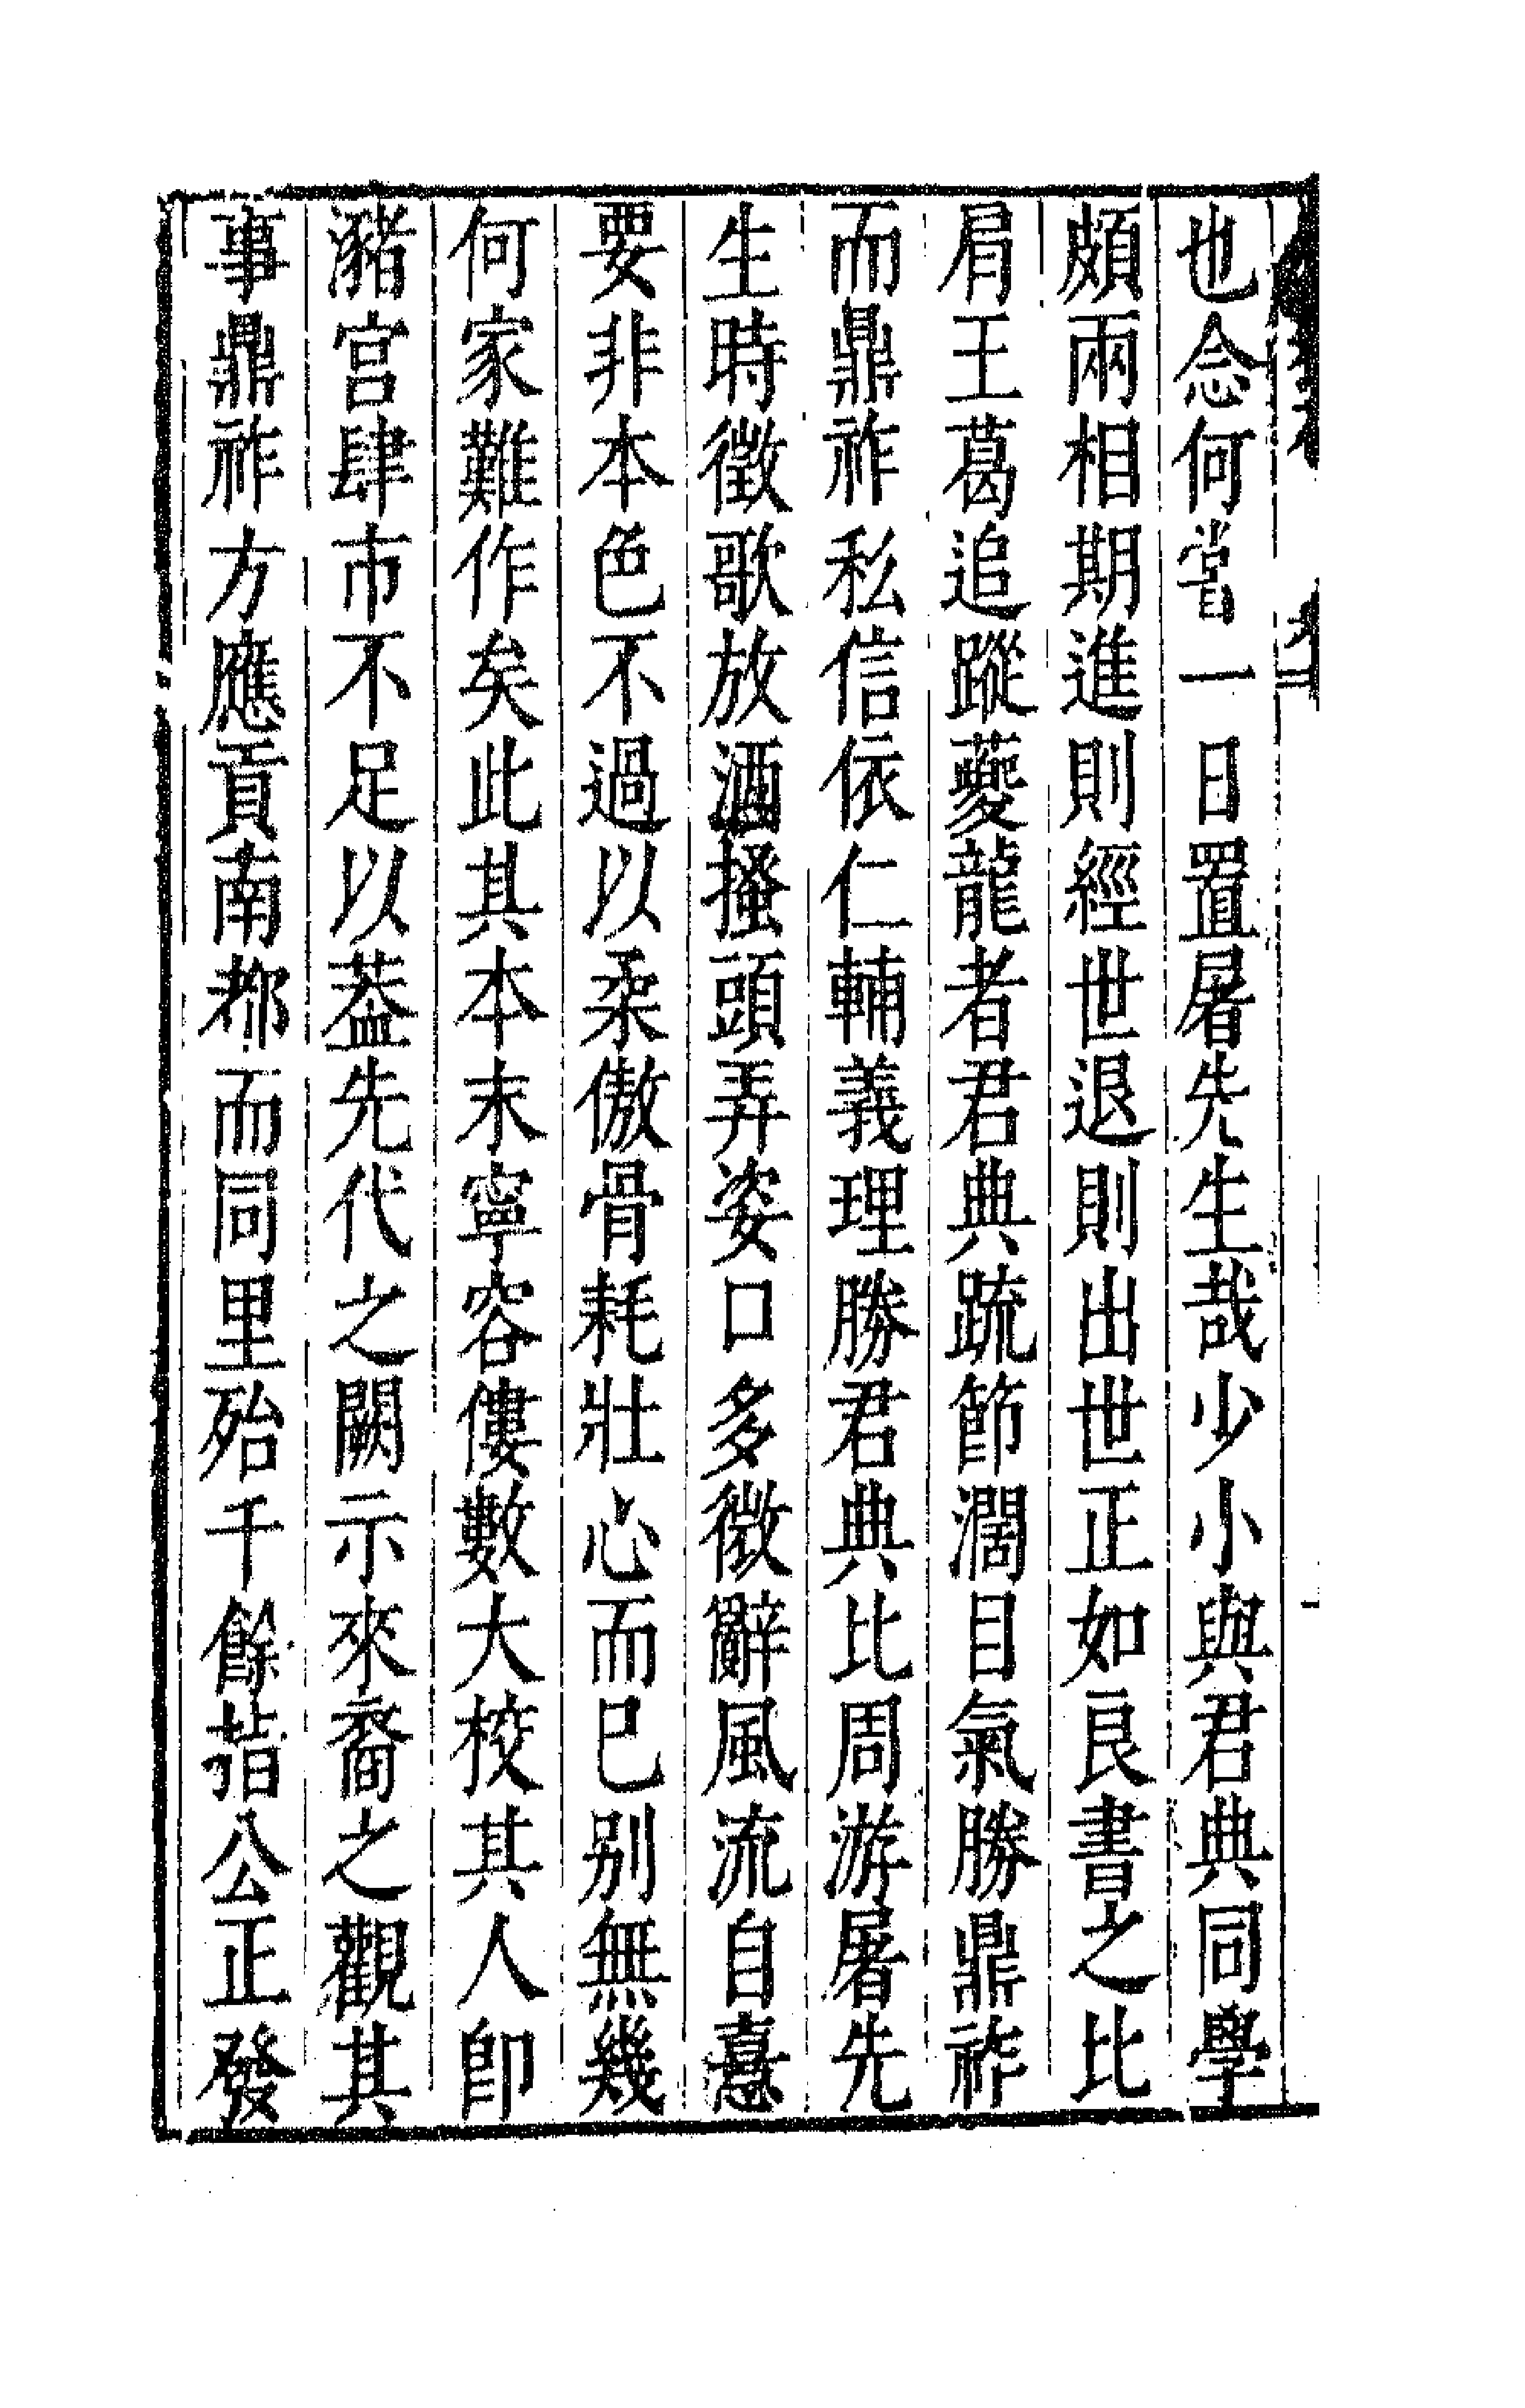 也念何嘗一日置屠先生哉少小與君典同學
頗兩相期進則經世退則出世正如良書之比
肩王葛追蹤夔龍者君典䟽節濶目氣勝鼎祚
而鼎祚私信依仁輔義理勝君典比周游屠先
生時徵歌放酒搔頭弄姿口多微辭風流自憙
要非本色不過以柔傲骨耗壯心而已别無幾
何家難作矣此其本末寧容僂數大校其人卽
瀦宫肆市不足以葢先代之闕示來裔之觀其
事鼎祚方應貢南都而同里殆千餘指公正發